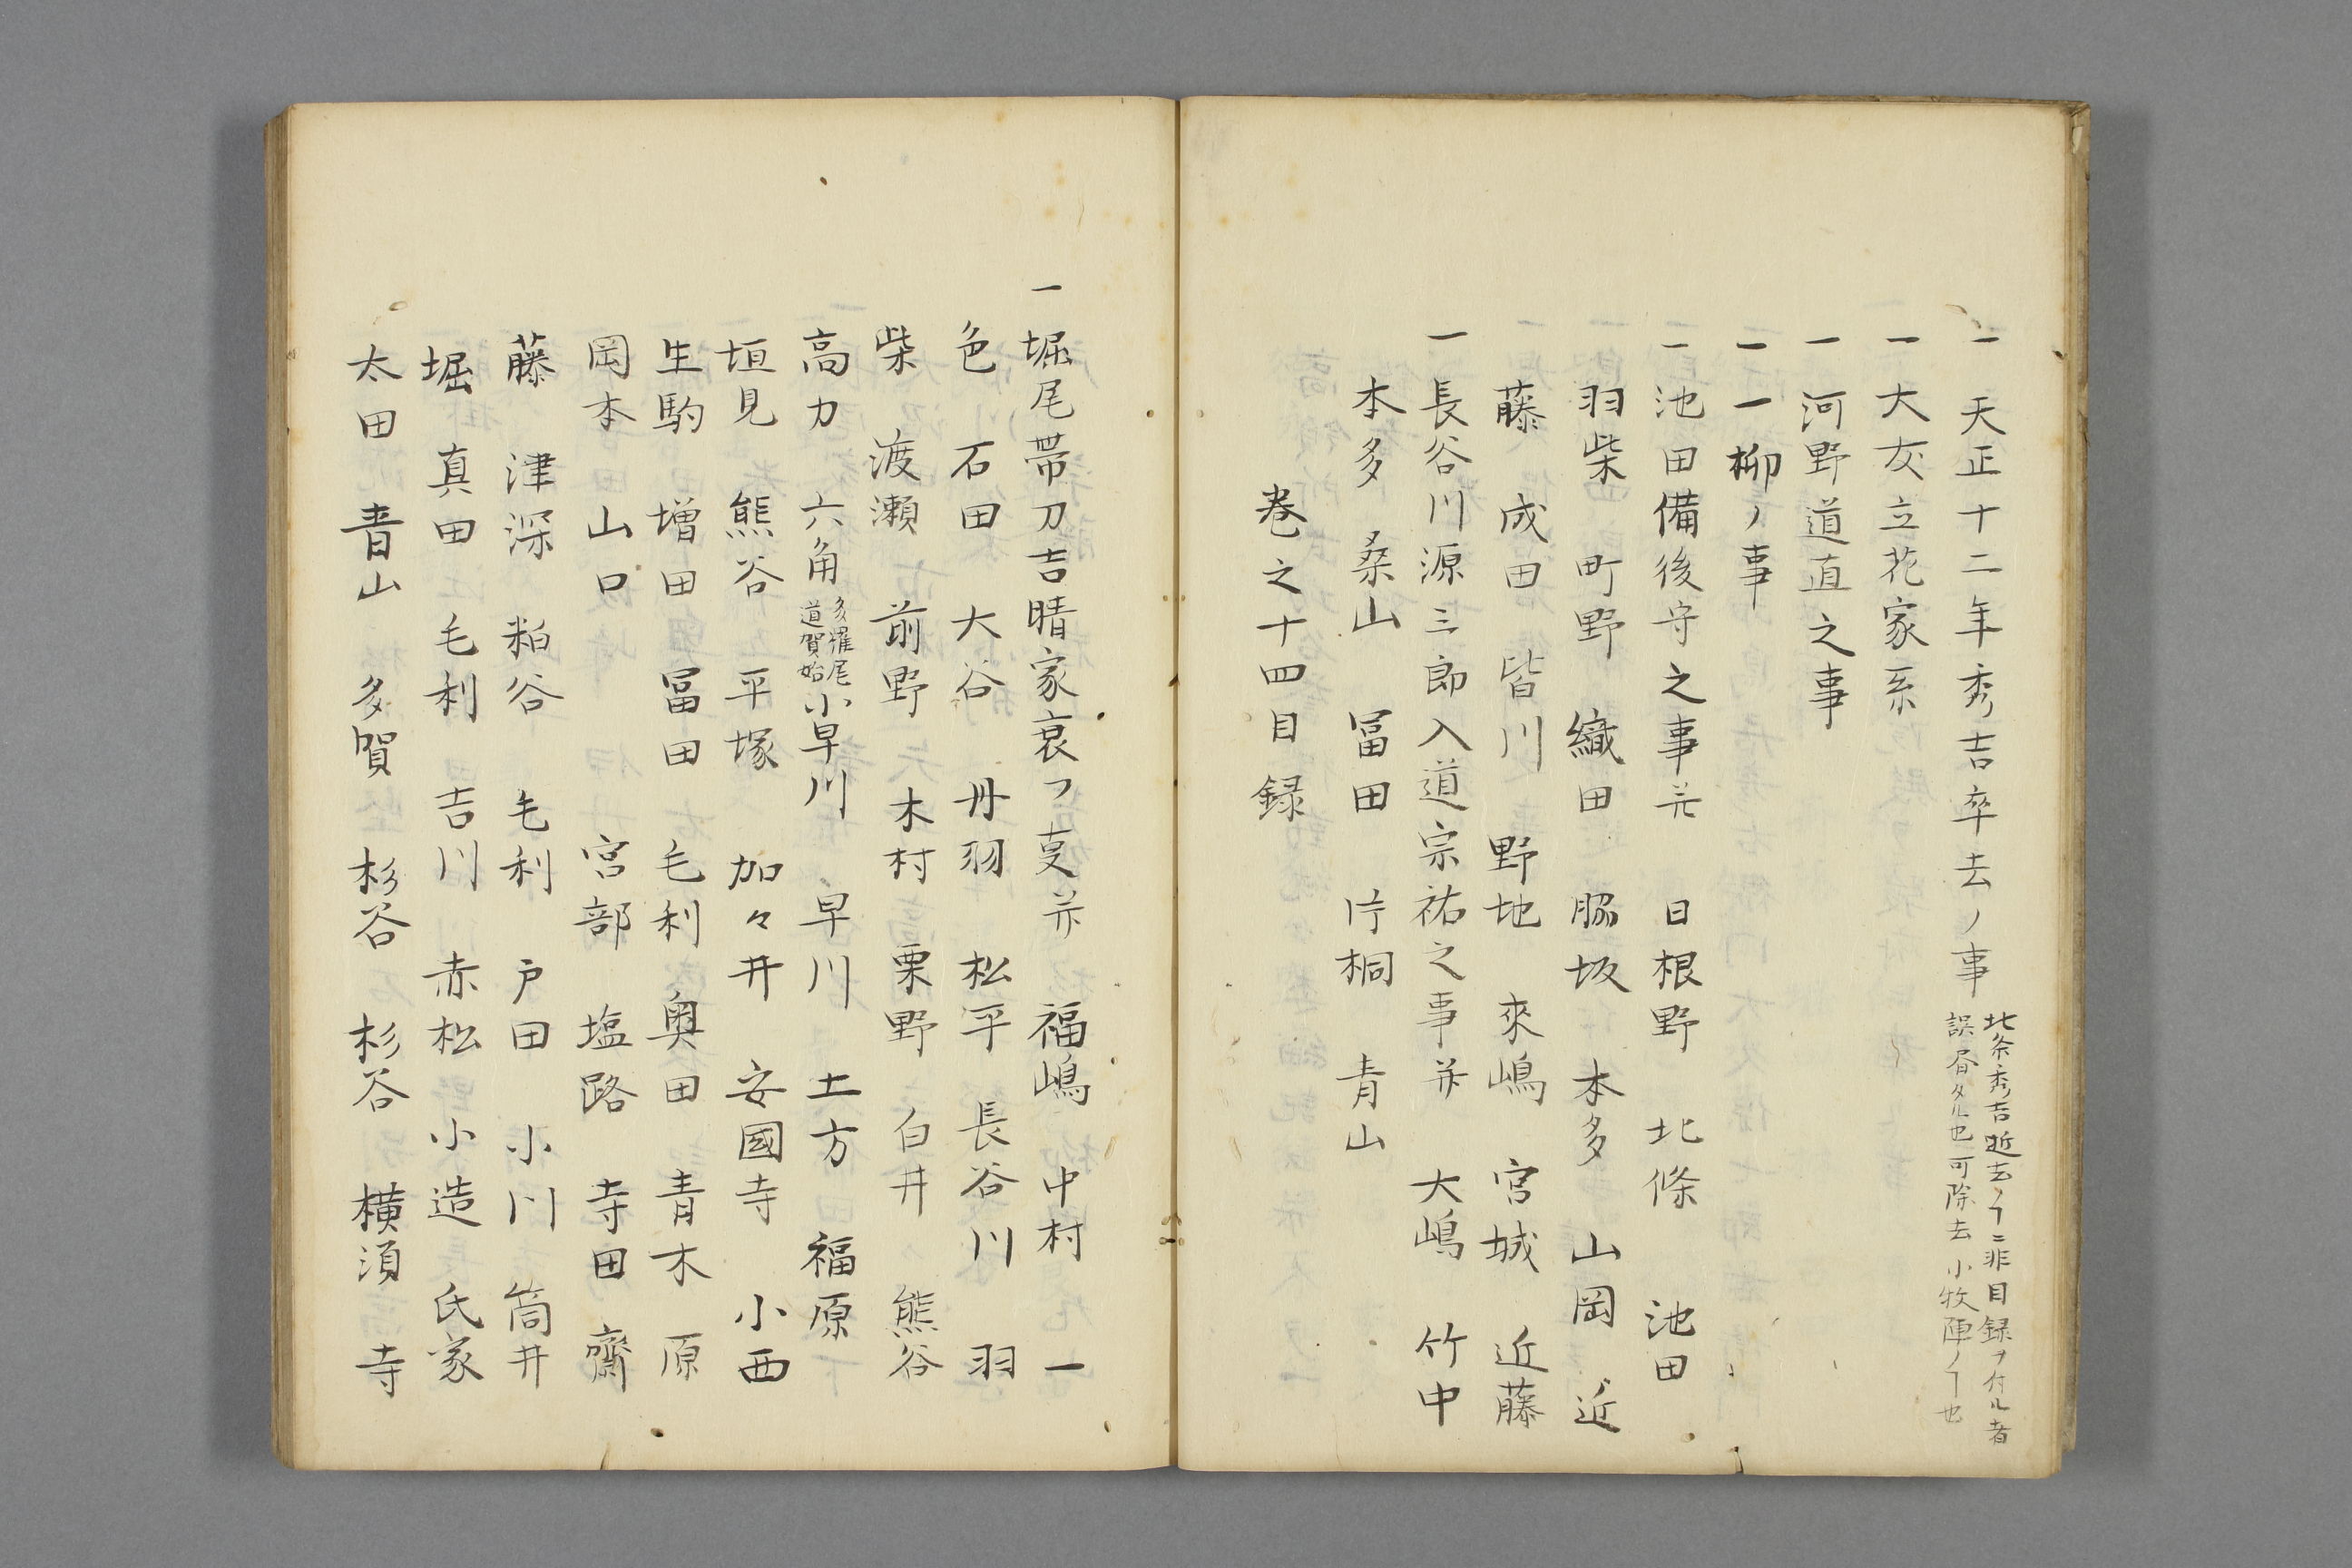 一天正十二年秀吉卒去ノ事
北条秀吉逝去ノヿニ非目録ヲ付ル者
誤昏タル也可除去小牧陣ノヿ也
一大友立花家系
一河野道直之事
一一柳ノ事
一池田備後守之事并 日根野 北條 池田
羽柴 町野 織田 脇坂 本多 山岡 近
藤 成田 皆川 野地 來嶋 宮城 近藤
一長谷川源三郎入道宗祐之事并 大嶋 竹中
本多 桑山 冨田 片桐 青山
巻之十四目録
一堀尾帯刀吉晴家衰フ叓并 福嶋 中村 一
色 石田 大谷 丹羽 松平 長谷川 羽
柴 渡瀬 前野 木村 栗野 白井 熊谷
高力 六角
多羅尾
道賀始
小早川 早川 土方 福原
垣見 熊谷 平塚 加々井 安國寺 小西
生駒 増田 冨田 毛利 奥田 青木 原
岡本 山口 宮部 塩路 寺田 齋
藤 津深 粕谷 毛利 戸田 小川 筒井
堀 真田 毛利 吉川 赤松 小造 氏家
太田 青山 多賀 杉谷 杉谷 横須 寺